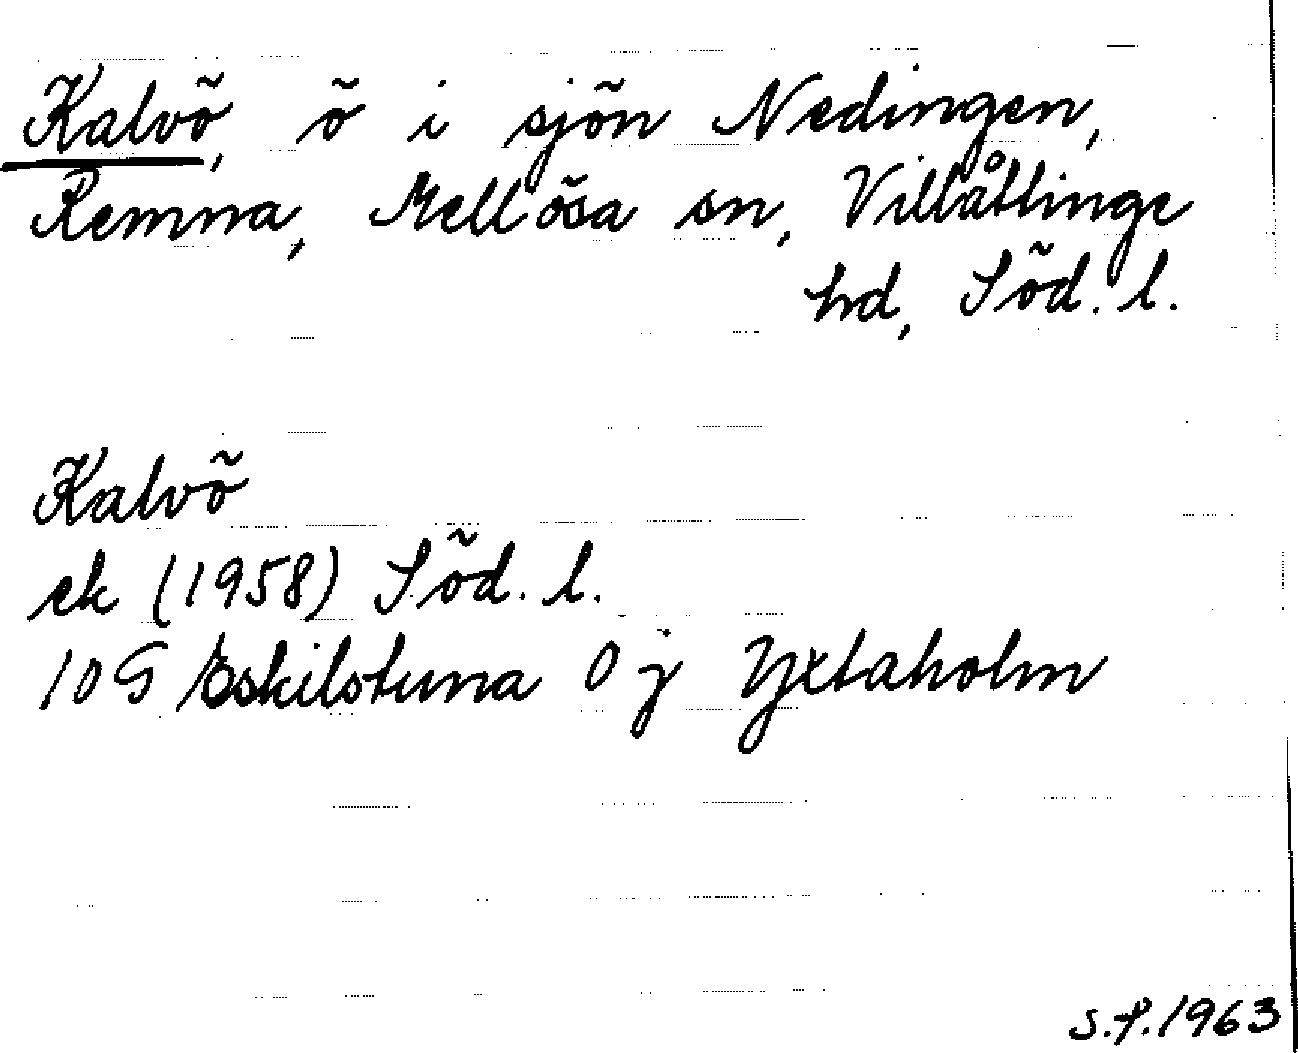 Kalvö, ö i sjön Nedingen,
Remna, Mellösa sn, Villåttinge
hd, Söd. l.
Kalvö
ek (1958) Söd. l.
10 G Eskilstuna 0 j Yxtaholm
S.P. 1963